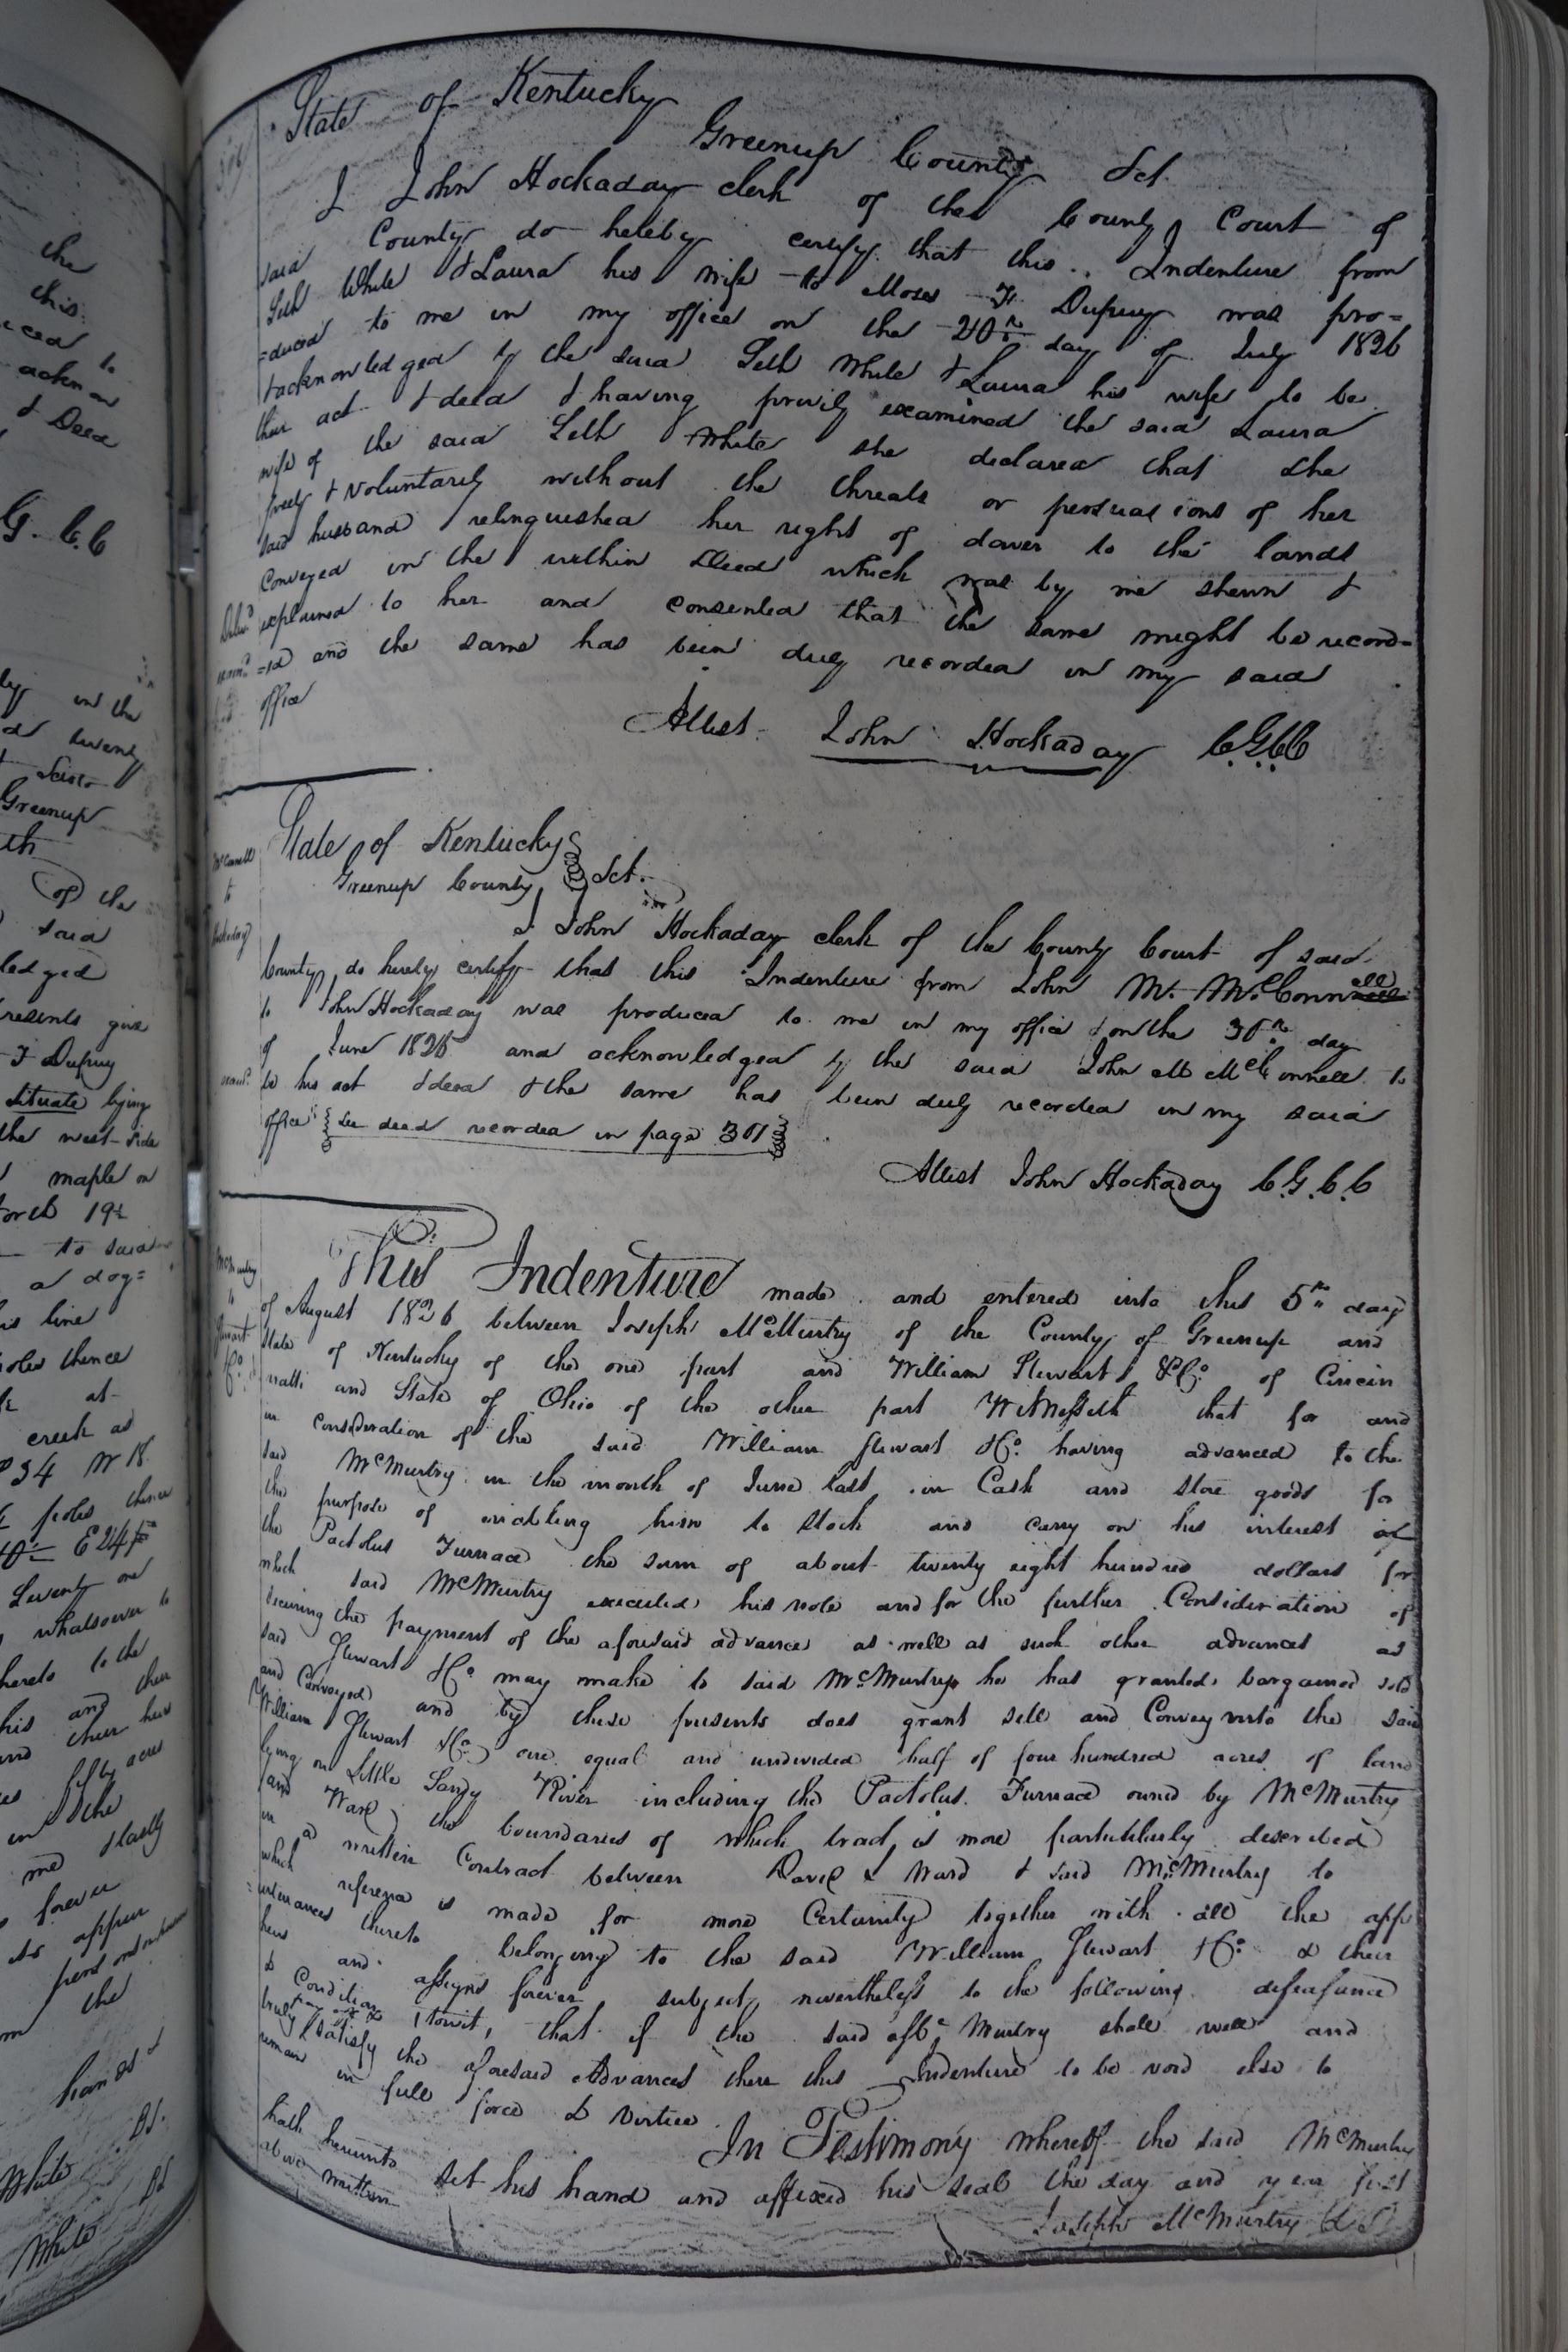 the
this
acknow
& Deed
G. C. C
in the
twenty
Greenup
of the
said
ledged
resents give
F Dupuy
situate lying
the west side
maple on
19½
to said
a dog=
line
thence
at
creek as
34 W 18
poles thence
E 24
Seventy one
whatsoever to
hereto to the
his and their
and their heirs
fifty acres
in the
forever
appur
the
hands &
White LS.
White LS
State of Kentucky
Greenup County Sct
I John Hockaday clerk of the County Court of
said County do hereby certify that this Indenture from
Seth White & Laura his wife to Moses F. Dupuy was pro=
=duced to me in my office on the 20th day of July 1826
& acknowledged by the said Seth White & Laura his wife to be
their act & deed & having privily examined the said Laura
wife of the said Seth White she declared that she
freely & voluntarily without the threats or persuasions of her
said husband relinquished her right of dower to the lands
conveyed in the within Deed which was by me shewn &
explained to her and consented that the same might be record=
=ed and the same has been duly recorded in my said
office
Attest John Hockaday C.G.C.C
State of Kentucky
Greenup County Sct.
McConnell
to
Hockaday
I John Hockaday clerk of the County Court of said
County do hereby certify that this Indenture from John M. McConnell
to John Hockaday was produced to me in my office & on the 30th day
of June 1826 and acknowledged by the said John M McConnell to
be his act & deed & the same has been duly recorded in my said
office {See deed recorded in page 301}
Attest John Hockaday C.G.C.C
McMurtry
to
Stewart
& Co.
This Indenture made and entered into this 5th day
of August 1826 between Joseph McMurtry of the County of Greenup and
State of Kentucky of the one part and William Stewart & Co. of Cincin
natti and State of Ohio of the other part Witnesseth that for and
in consideration of the said William Stewart & Co. having advanced to the
said McMurtry in the month of June last in Cash and store goods for
the purpose of enableing him to stock and carry on his interest at
the Pactolus Furnace the sum of about twenty eight hundred dollars for
which said McMurtry executed his note and for the further Consideration of
securing the payment of the aforesaid advance as well as such other advances as
said Stewart & Co may make to said McMurtry he has granted bargained sold
and Conveyed and by these presents does grant sell and Convey unto the said
William Stewart & Co one equal and undivided half of four hundred acres of land
lying on Little Sandy River including the Pactolus Furnace owned by McMurtry
and Ward the boundaries of which tract is more particularly described
in a written Contract between David L Ward & said McMurtry to
which referenc is made for more Certainty together with all the app
=urtenances thereto belonging to the said William Stewart & Co. & their
heirs and assigns forever subject nevertheless to the following defeasance
& Condition (towit, that if the said McMurtry shall well and
truly pay off & satisfy the aforesaid Advances then this Indenture to be void else to
remain in full force & virtue.
In Testimony whereof the said McMurtry
hath hereunto set his hand and affixed his seal the day and year first
above written
Joseph McMurtry LS